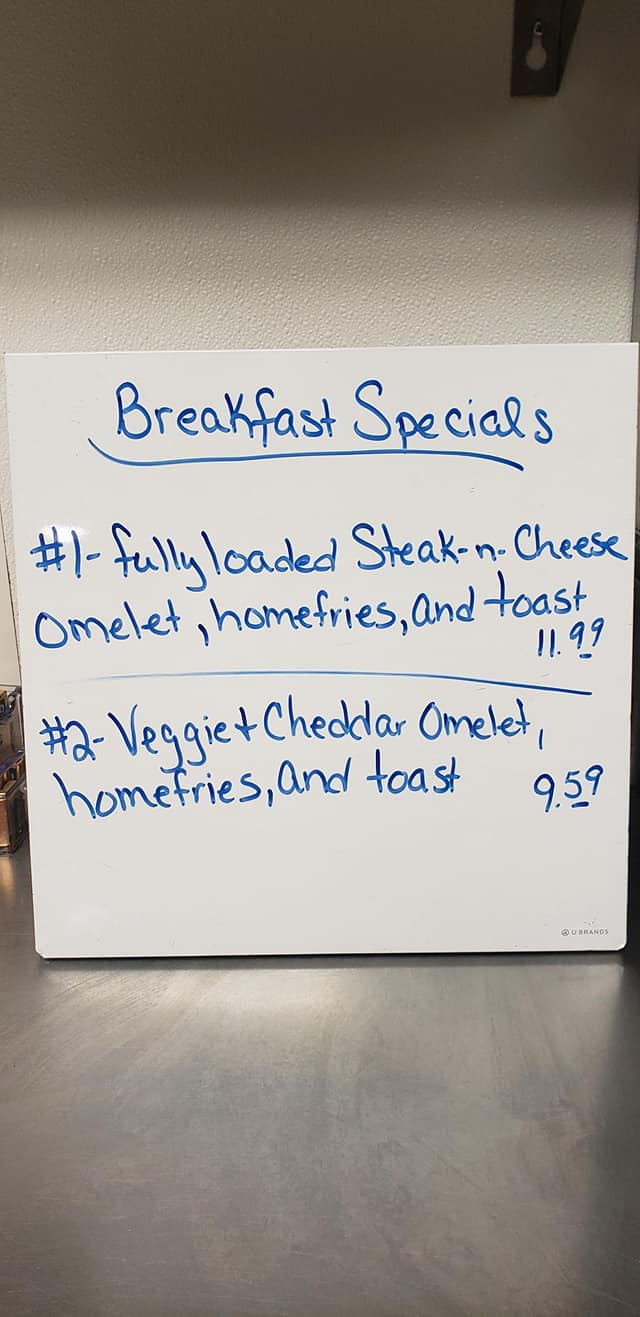 Breakfast Specials
#1- fully loaded Steak-n-Cheese
Omelet, homefries, and toast
11.99
#2- Veggie + Cheddar Omelet,
homefries, and toast 9.59
U BRANDS